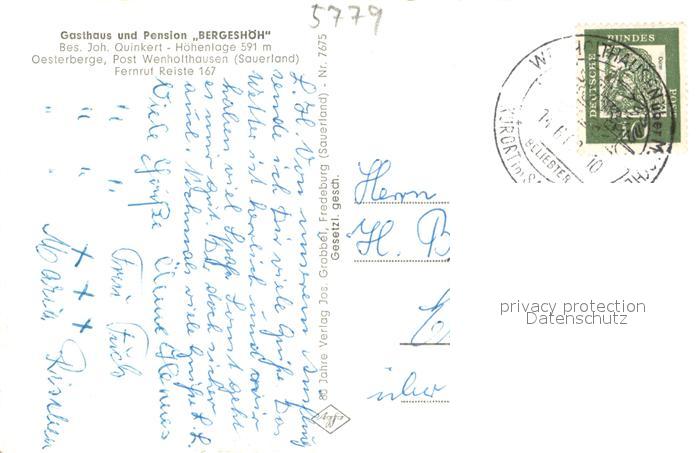 5779
Gasthaus und Pension „BERGESHÖH"
Bes. Joh. Quinkert - Höhenlage 591 m
Oesterberge, Post Wenholthausen (Sauerland)
Fernruf Reiste 167
L. H. Von unserem Ausflug
sende ich Dir viele Grüße Das
Wetter ist herrlich und wir
haben viel Spaß. Sonst geht
es mir gut. Dir doch sicher
auch. Nochmals viele Grüße
Viele Grüße Änne Hennes
" " Frau Fuchs
" " + + +
Maria
80 Jahre Verlag Jos. Grobbel, Fredeburg (Sauerland) - Nr. 7675
Gesetzl. gesch.
Herrn
H. B
über
DEUTSCHE BUNDESPOST
BELIEBTER
KURORT IM
privacy protection
Datenschutz